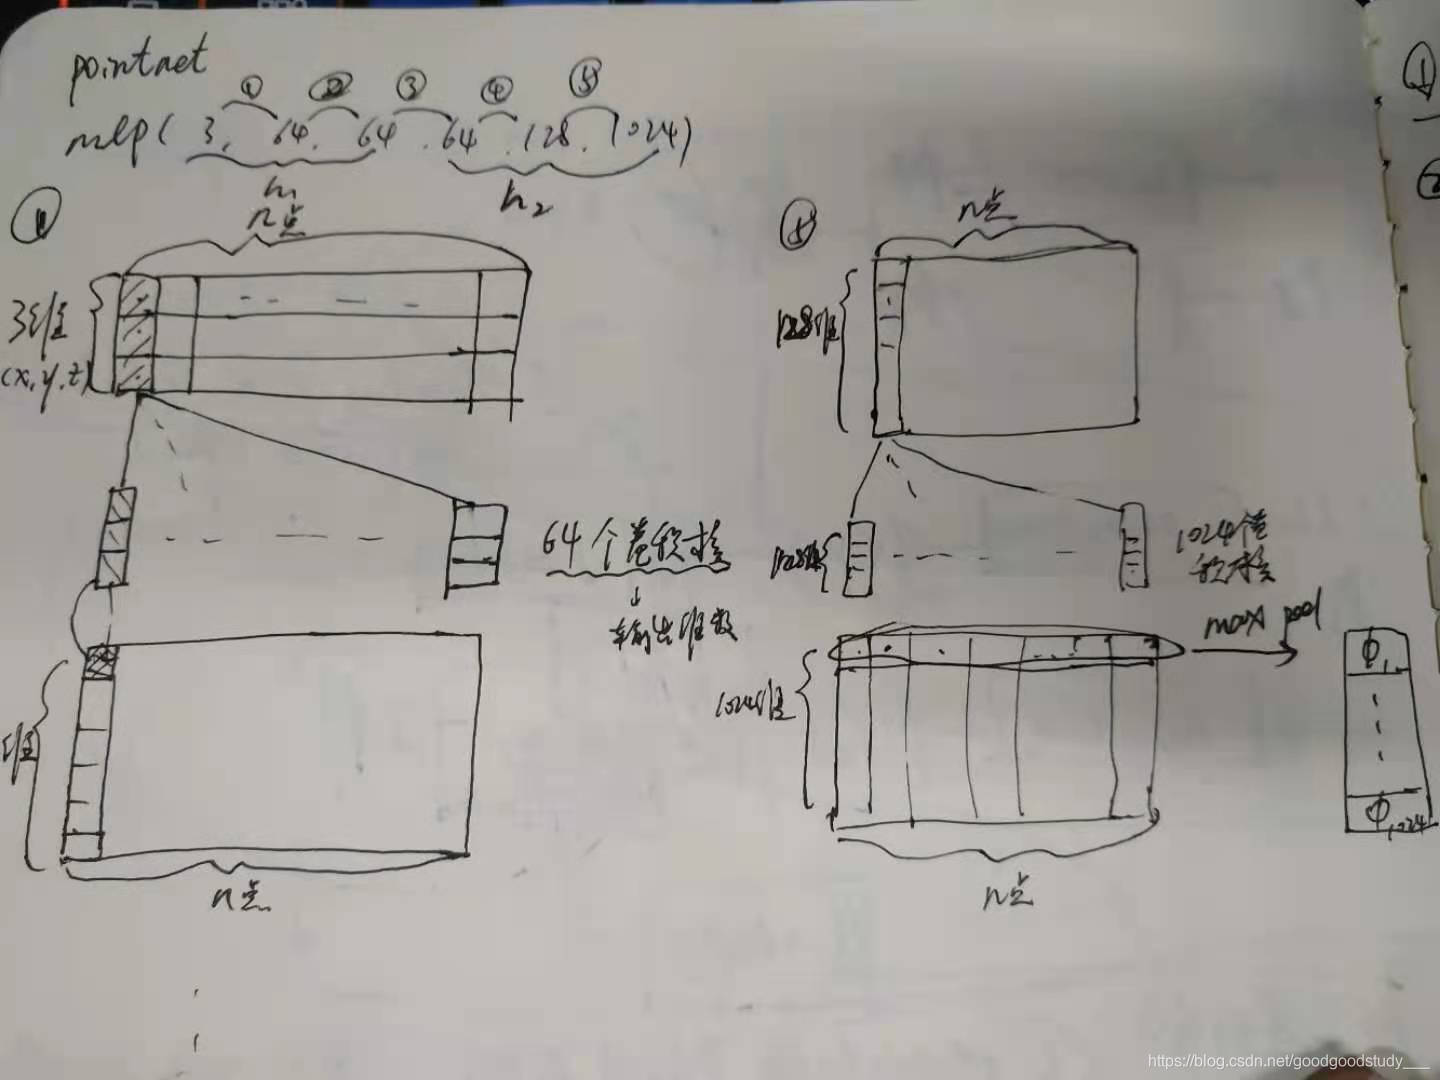 pointnet
① ② ③ ④ ⑤
mlp( 3, 64, 64, 64, 128, 1024)
h₁ h₂
①
n点
3维
(x,y,z)
64个卷积核
↓
输出维数
维
n点
⑤
n点
128维
128维
1024个卷
积核
max pool
1024维
n点
Φ₁
Φ₁₀₂₄
①
②
https://blog.csdn.net/goodgoodstudy___